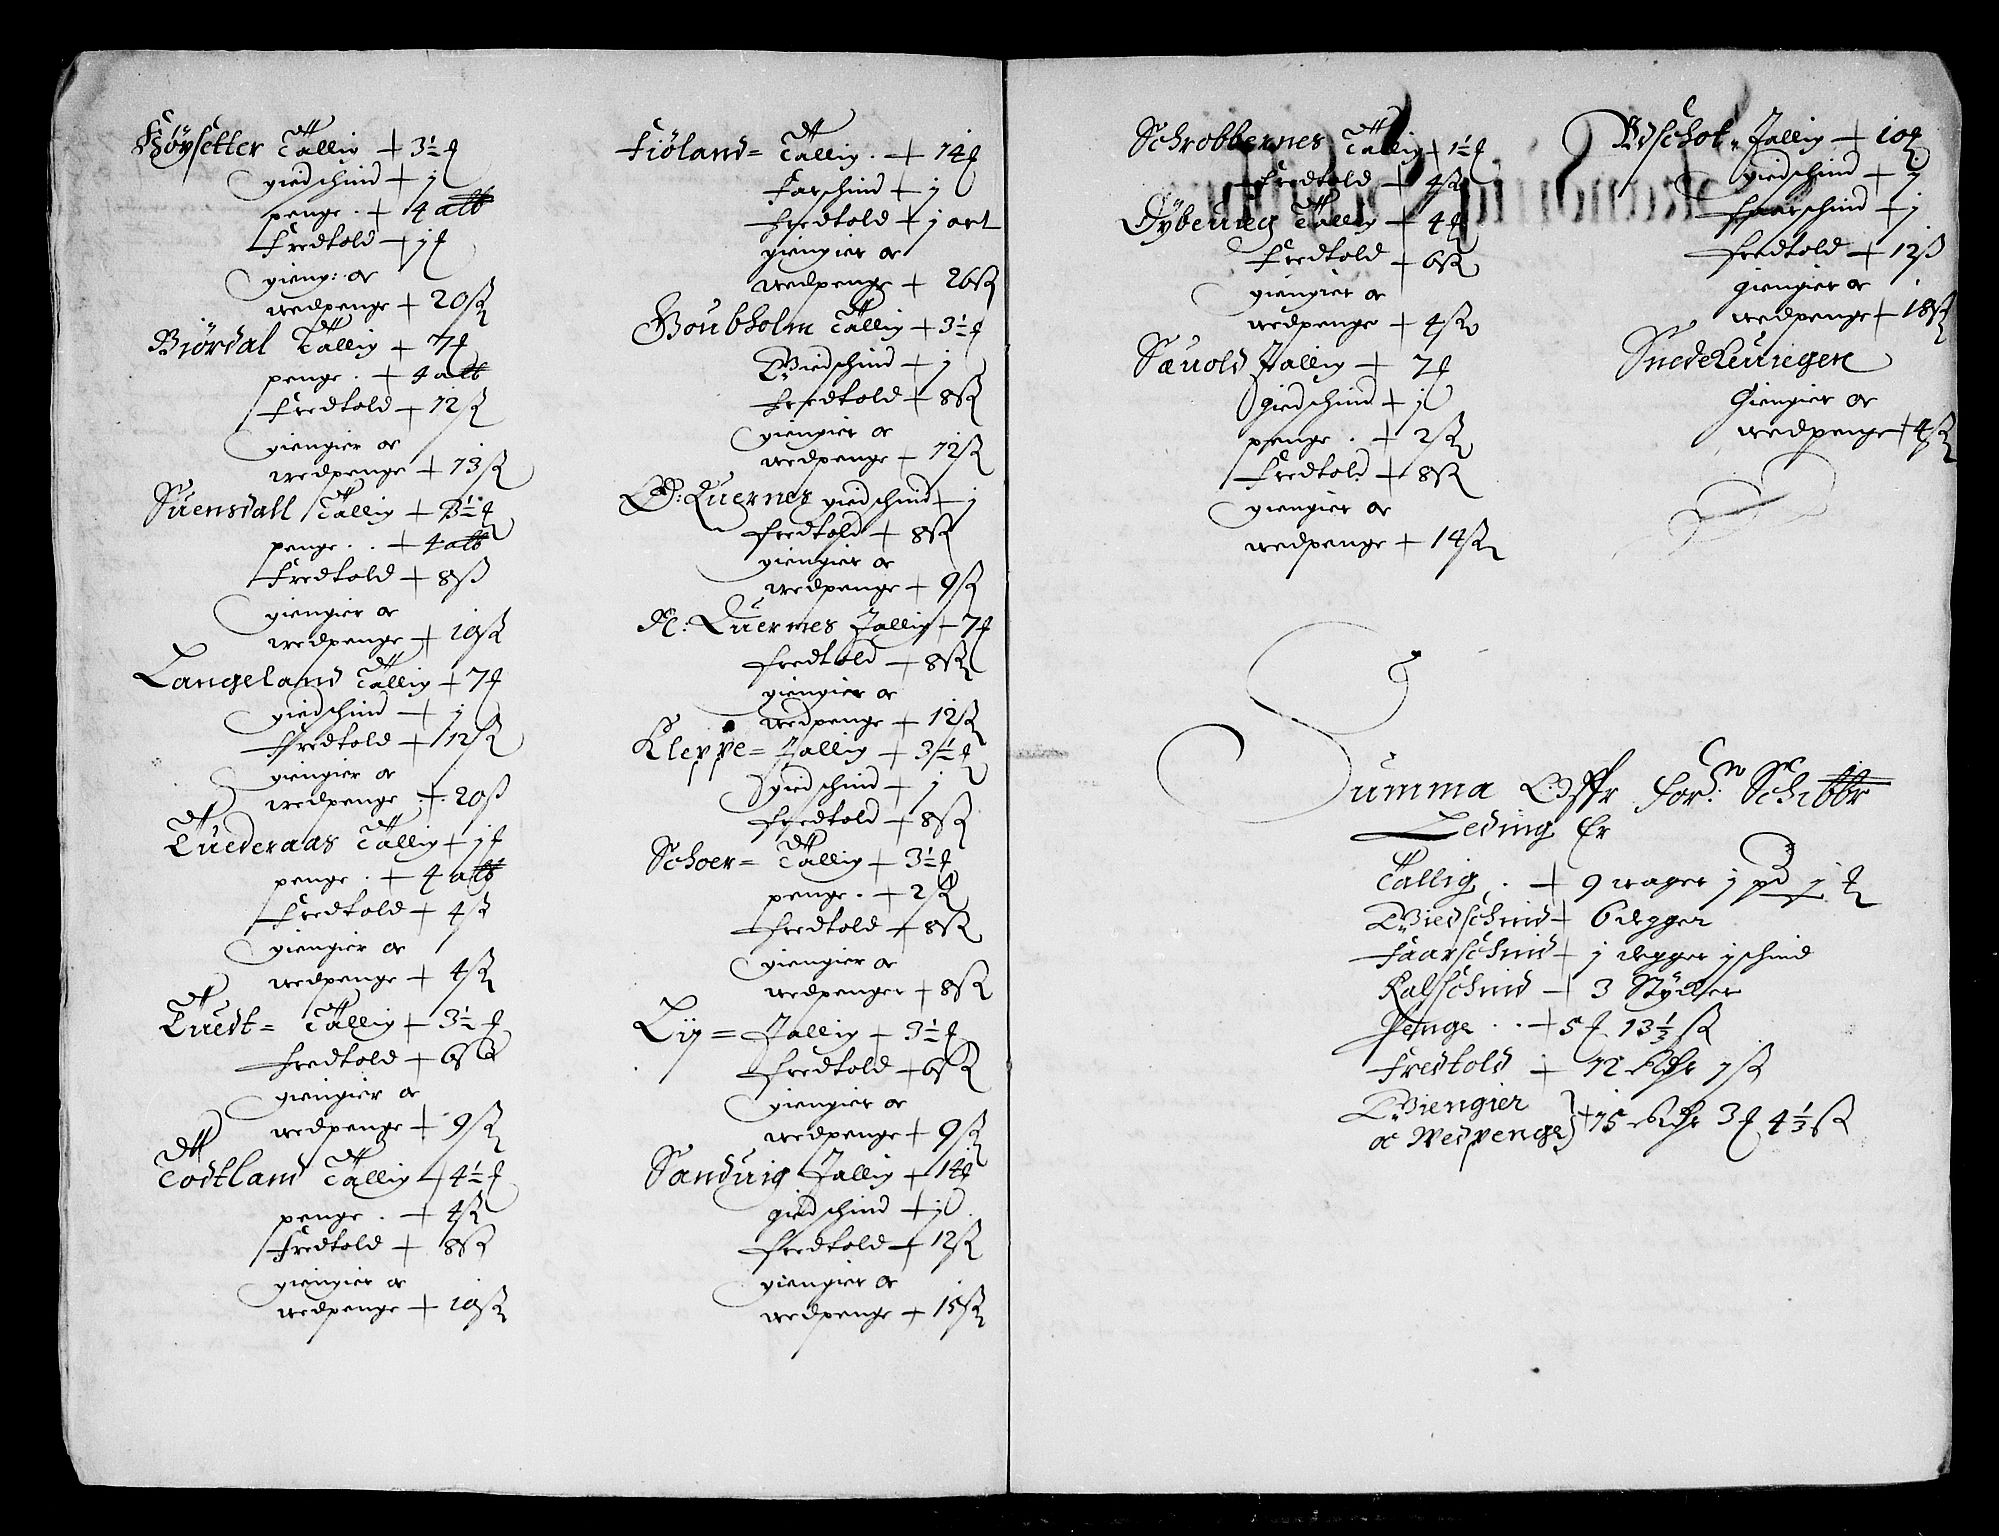 Høysetter Tallig + 3½ ℔
giedschind + j
penge . + 4 alb
Fredtold + j ℔
gieng: oc
wedpenge + 20 ß
Biørdal Tallig + 7 ℔
penge . + 4 alb
Fredtold + 12 ß
giengier oc
wedpenge + 13 ß
Suensdall Tallig + 3½ ℔
penge . . + 4 alb
Fredtold + 8 ß
giengier oc
wedpenge + 10 ß
Langeland Tallig + 7 ℔
giedschind + j
Fredtold + 12 ß
giengier oc
wedpenge + 20 ß
Tuederaas Tallig + j ℔
penge . + 4 alb
Fredtold + 4 ß
giengier oc
wedpenge + 4 ß
Tuedt = Tallig + 3½ ℔
Fredtold + 6 ß
giengier oc
wedpenge + 9 ß
Todtland Tallig + 4½ ℔
penge . + 4 ß
Fredtold + 8 ß
giengier oc
wedpenge + 10 ß
Fiøland = Tallig . + 14 ℔
Farschind + j
Fredtold + j ort
giengier oc
wedpenge + 26 ß
Goubholm Tallig + 3½ ℔
Giedschind + j
Fredtold + 8 ß
giengier oc
wedpenge + 12 ß
Ø: Quernes giedschind + j
Fredtold + 8 ß
giengier oc
wedpenge + 9 ß
N: Quernes Tallig + 7 ℔
Fredtold + 8 ß
giengier oc
wedpenge + 12 ß
Kleppe = Tallig + 3½ ℔
giedschind + j
Fredtold + 8 ß
Schoer = Tallig + 3½ ℔
penge . + 2 ß
Fredtold + 8 ß
giengier oc
wedpenger + 8 ß
Lij = Tallig + 3½ ℔
Fredtold + 6 ß
giengier oc
wedpenge + 9 ß
Sanduig Tallig + 14 ℔
giedschind + j
Fredtold + 12 ß
giengier oc
wedpenge + 15 ß
Schrobbernes Tallig + 1½ ℔
Fredtold + 4 ß
Dybeuieg Tallig + 4 ℔
Fredtold + 6 ß
giengier oc
wedpenge + 4 ß
Sæuold Tallig + 7 ℔
giedschind + j
penge . + 2 ß
Fredtold + 8 ß
giengier oc
wedpenge + 14 ß
Edschot = Tallig + 10 ℔
giedschind + j
Faarschind + j
Fredtold + 12 ß
giengier oc
wedpenge + 18 ß
Snedekeuiegen
Giengier oc
wedpenge + 4 ß
Summa Offr for:n Schibbr
Leding Er
Tallig . + 9 wager j pd j ℔
Giedschind + 6 degger
Faarschind + j degger j schind
Kalfschind + 3 Stycker
Penge . . + 5 ℔ 13⅓ ß
Fredtold + 12 Rdr 7 ß
Giengier
oc Wedpenge } + 15 Rdr 3 ℔ 4⅓ ß